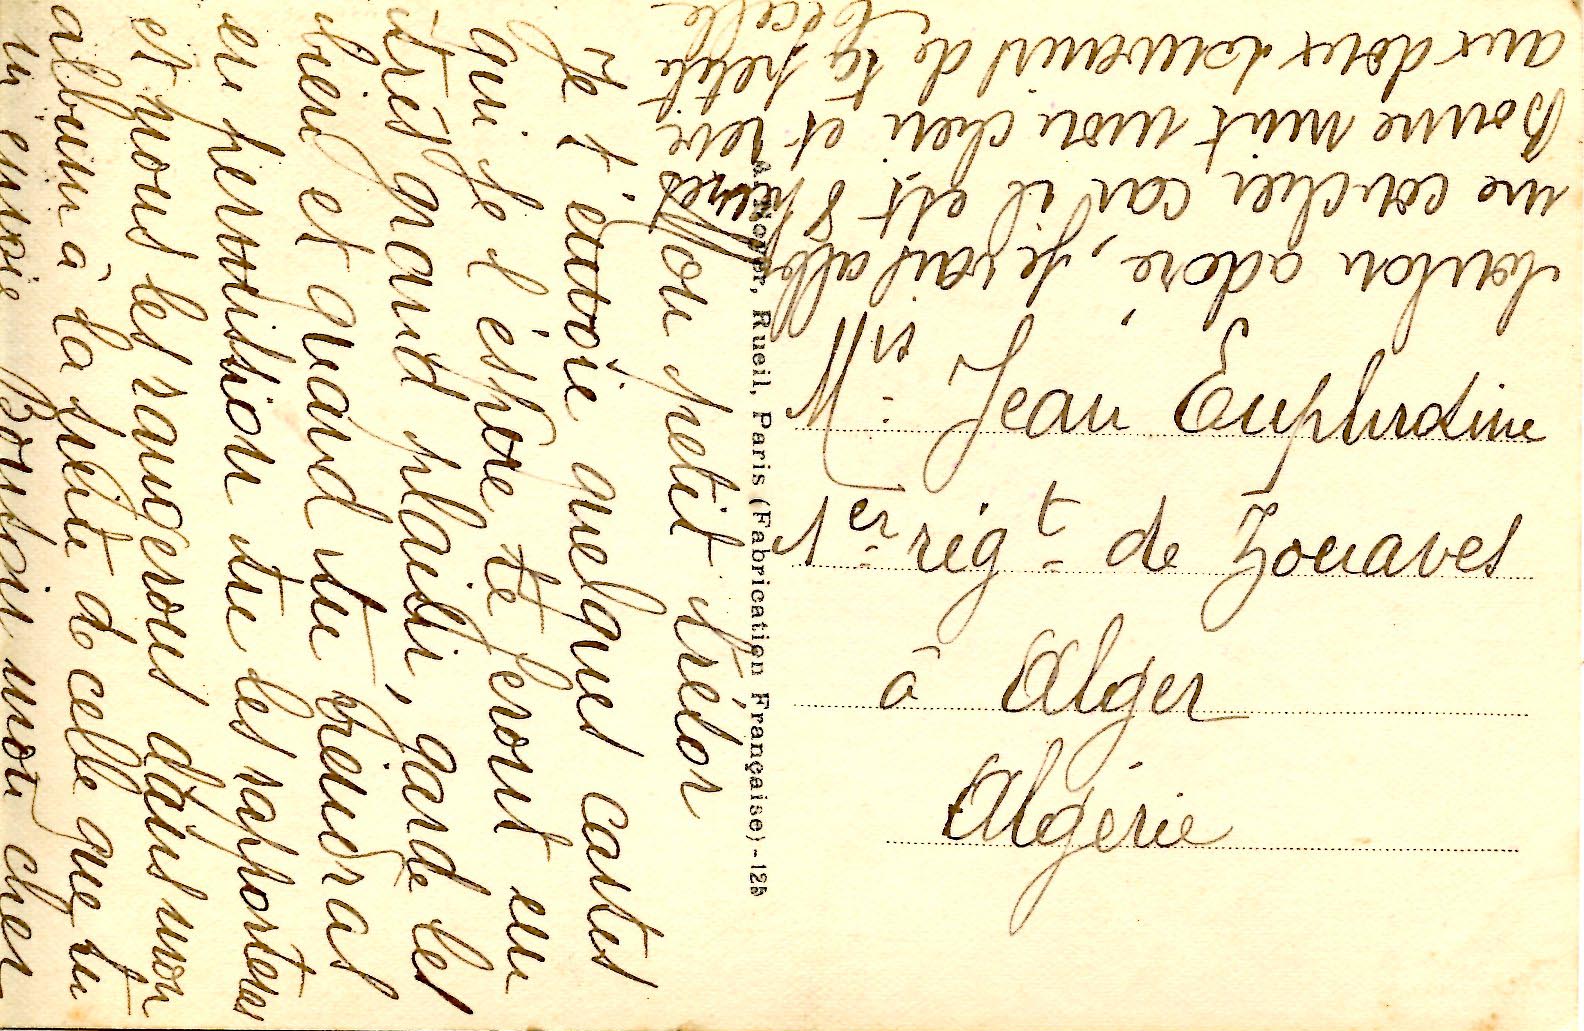 Mon petit trésor
Je t'envoie quelques cartes
qui je l'éspère te feront un
très grand plaisir, garde les
bien et quand tu viendras
en permission tu les rapporteras
et nous les rangerons dans mon
album à la suite de celle que tu
m'envoie Bonsoir mon cher
loulou adoré, je vais aller
me coucher car il est 8 heures
Bonne nuit mon cheri et reve
aux doux souvenirs de ta petite
A. Noyer, Rueil, Paris (Fabrication Française) - 125
M. Jean
1er régt de Zouaves
à Alger
Algérie